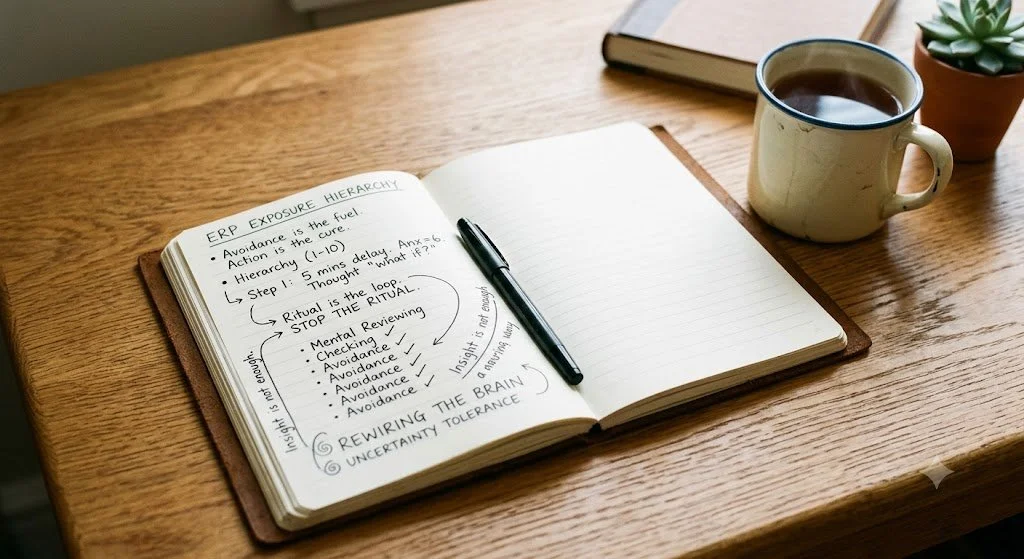 ERP EXPOSURE HIERARCHY
• Avoidance is the fuel.
Action is the cure.
• Hierarchy (1-10)
↳ Step 1: 5 mins delay. Anx=6.
Thought "what if?"
Ritual is the loop.
STOP THE RITUAL.
• Mental Reviewing
• Checking ✓
• Avoidance ✓
• Avoidance ✓
• Avoidance ✓
• Avoidance ✓
Insight is not enough
Insight is not enough
a
way
REWIRING THE BRAIN
UNCERTAINTY TOLERANCE